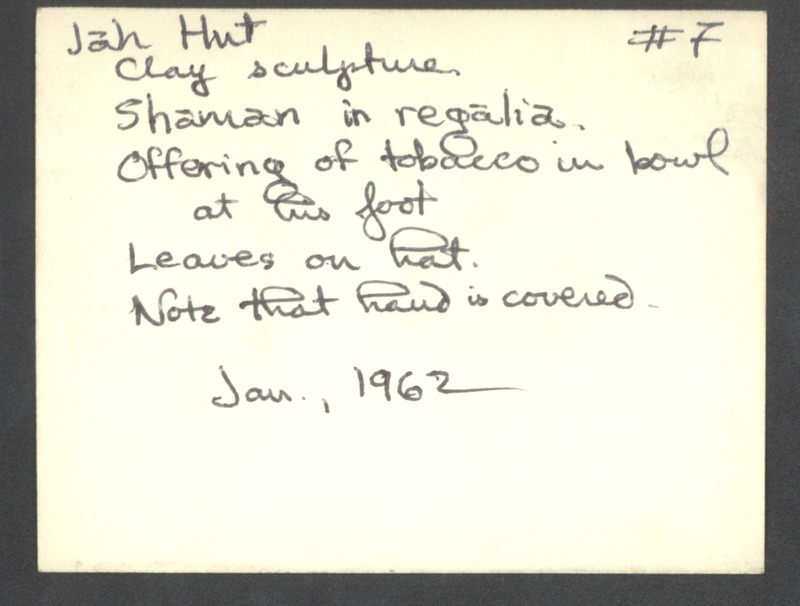 Jah Hut #7
Clay sculpture.
Shaman in regalia.
Offering of tobacco in bowl
at his foot
Leaves on hat.
Note that hand is covered.
Jan., 1962